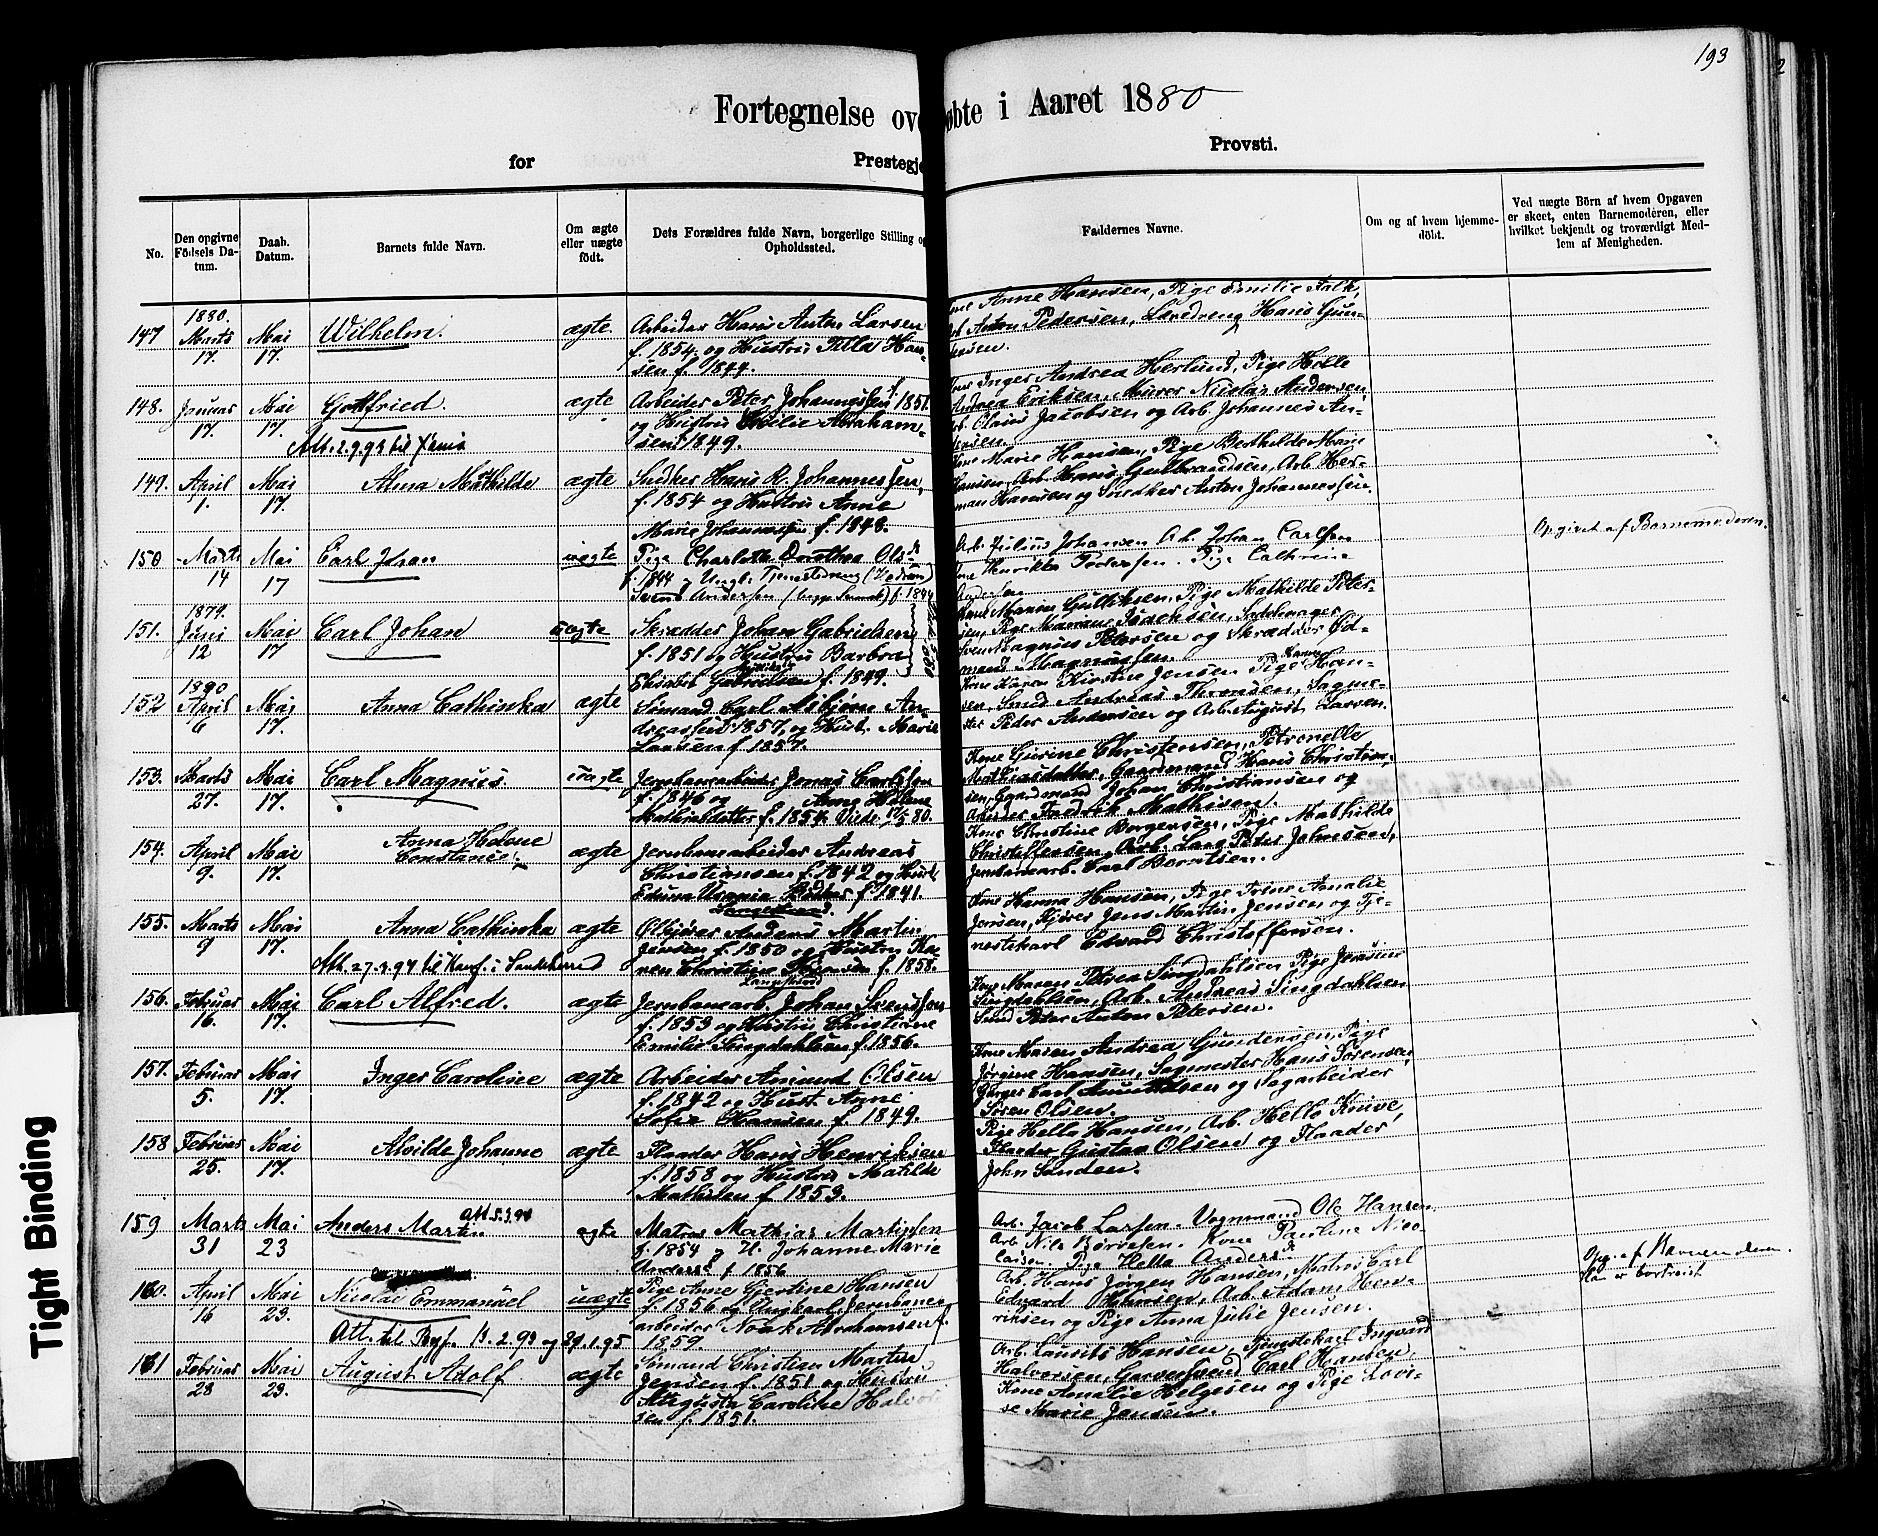 193
2
Fortegnelse ov øbte i Aaret 1880
for Prestegje Provsti.
No.
Den opgivne Födsels Da-tum.
Daab. Datum.
Barnets fulde Navn.
Om ægte eller uægte født.
Dets Forældres fulde Navn, borgerlige Stilling og Opholdssted.
Faddernes Navne.
Om og af hvem hjemme-döbt.
Ved uægte Börn af hvem Opgaven er skeet, enten Barnemoderen, eller hvilket bekjendt og troværdigt Med-lem af Menigheden.
147 1880. Marts 17. Mai 17. Wilhelm. ægte
Arbeider Hans Anton Larsen
f. 1854 og Hustru Han-
sen f. 1844.
Anne Hansen, Pige Emilie Falk,
Anton Pedersen, Hans Gun-
148. Januar 17. Mai 17. Gottfried. ægte
Att. 2.9.93 til
Arbeider Peter Johannessen f. 1851
og Hustru Abraham-
sen f. 1849.
Inger Andrea Herlund, Pige Helle
Andrea Eriksen, Murer Nicolai Andersen
Arb. Olaus Jacobsen og Arb. Johannes An-
149. April 1. Mai 17. Alma Mathilde ægte
Snedker Hans R. Johannessen,
f. 1854 og Hustru Anne
Marie Johannessen f. 1848.
Kone Marie Hansen, Pige Berthilde Marie
Hansen, Arb. Hans Gulbrandsen, Arb. Her-
man Hansen og Snedker Anton Johannessen.
150 Marts 14 Mai 17 Carl Johan uægte
Pige Charlotte Dorothea Ols
f. 1844 og Ungk. Tjenestedreng
Andersen f. 1844
Arb. Julius Johansen Arb. Johan Carlsen
Kone Henrikke Pedersen. Pige Cathrine
Andersen
Opgivet af Barnemoderen.
151. 1879. Juni 12 Mai 17 Carl Johan uægte
Skrædder Johan Gabrielsen
f. 1851 og Hustru Barbra
Elisabet Gabrielsen f. 1849.
Kone Maren Gulliksen, Pige Mathilde Peter-
sen, Pige Mariane Isachsen, Sadelmager
Sven Magnus Petersen og Skrædder Ød-
mand Magnussen.
152 1880 April 6 Mai 17. Anna Cathinka ægte
Sömand Carl Asbjörn An-
dreassen f. 1857, og Hust. Marie
Larsen f. 1857.
Kone Karen Kirstine Jensen Pige Han-
sen, Smed Andreas Thronsen, Sagme-
ster Peder Andersen og Arb. August Larsen.
153. Marts 27. Mai 17. Carl Magnus. uægte
Jernbanearbeider Jonas Carlsson
f. 1846 og Anne Helene
Mathiasdatter f. 1854. Viede 17/5 80.
Kone Gurine Christensen, Petronelle
Mathiasdatter, Gaardmand Hans Christian-
sen, Gaardmand Johan Christiansen og
Arbeider Fredrik Mathisen.
154. April 9. Mai 17. Anna Helene Constance. ægte
Jernbanearbeider Andreas
Christiansen f. 1842 og Hust.
f. 1841.
Langestrand.
Kone Christine Borgersen, Pige Mathilde
Christoffersen, Arb. Lars Peter Johnsen,
Jernbanearb. Carl Berntsen.
155. Marts 9 Mai 17. Anna Cathinka ægte
Att. 27.3.94 til Konf. i Sandeherred
Martin
Jensen f. 1850 og Hustru Ka-
ren Christine f. 1858.
Langestrand
Kone Hanna Hansen, Pige Trine Amalie
Jensen, Kjører Jens Martin Jensen og Tje-
nestekarl Edvard Christoffersen.
156. Februar 16. Mai 17. Carl Alfred. ægte
Jernbanearb. Johan Svensson
f. 1853 og Hustru Christiane
Emilie Singdahlsen f. 1856.
Kone Maren Petrea Singdahlsen Pige Jensine
Singdahlsen, Arb. Andreas Singdahlsen
Smed Peter Anton Petersen.
157. Februar 5. Mai 17. Inger Caroline ægte
Arbeider Amund Olsen
f. 1842 og Hust. Anne
Sofie Hansen f. 1849.
Kone Maren Andrea Gundersen, Pige
Jørgine Hansen, Sagmester Hans Sørensen,
Carl Amundsen og Sagarbeider
Søren Olsen.
158 Februar 25. Mai 17. Alvilde Johanne ægte
Flaader Hans Henriksen
f. 1858 og Hustru Matilde
Mathisen f. 1853.
Pige Hella Hansen, Arb. Helle Knive,
Flaader Gustav Olsen og Flaader
John Sanden.
159 Marts 31 Mai 23 Anders Martin ægte
Att. 5.3.94
Matros Mathias Martinsen
f. 1854 og H. Johanne Marie
Anders f. 1856
Arb. Jacob Larsen. Vognmand Ole Hansen
Arb Nils Børresen. Kone Pauline Nico-
laisen. Pige Hella Anders
160. April 16 Mai 23. Nicolai Emmanuel uægte
Att. til Konf. 13.2.93 og 29.1.95
Pige Anne Gjertine Hansen
f. 1856 og Ungkarl Jernbane-
arbeider Noak Abrahamsen f.
1859.
Arb. Hans Jørgen Hansen, Matros Carl
Edvard Arb. Adam Hen-
riksen og Pige Anna Julie Jensen.
Opg. af Barnemoderen.
Han er bortreist
161 Februar 28 Mai 23. August Adolf. ægte
Sömand Christian Martin
Jensen f. 1851 og Hustru
Augusta Caroline Halvor-
sen f. 1851.
Arb. Laurits Hansen, Tjenestekarl Ingvard
Halvorsen, Garversvend Carl Hansen,
Kone Amalie Helgesen og Pige Lovi-
se Marie Jensen.
Tight Binding